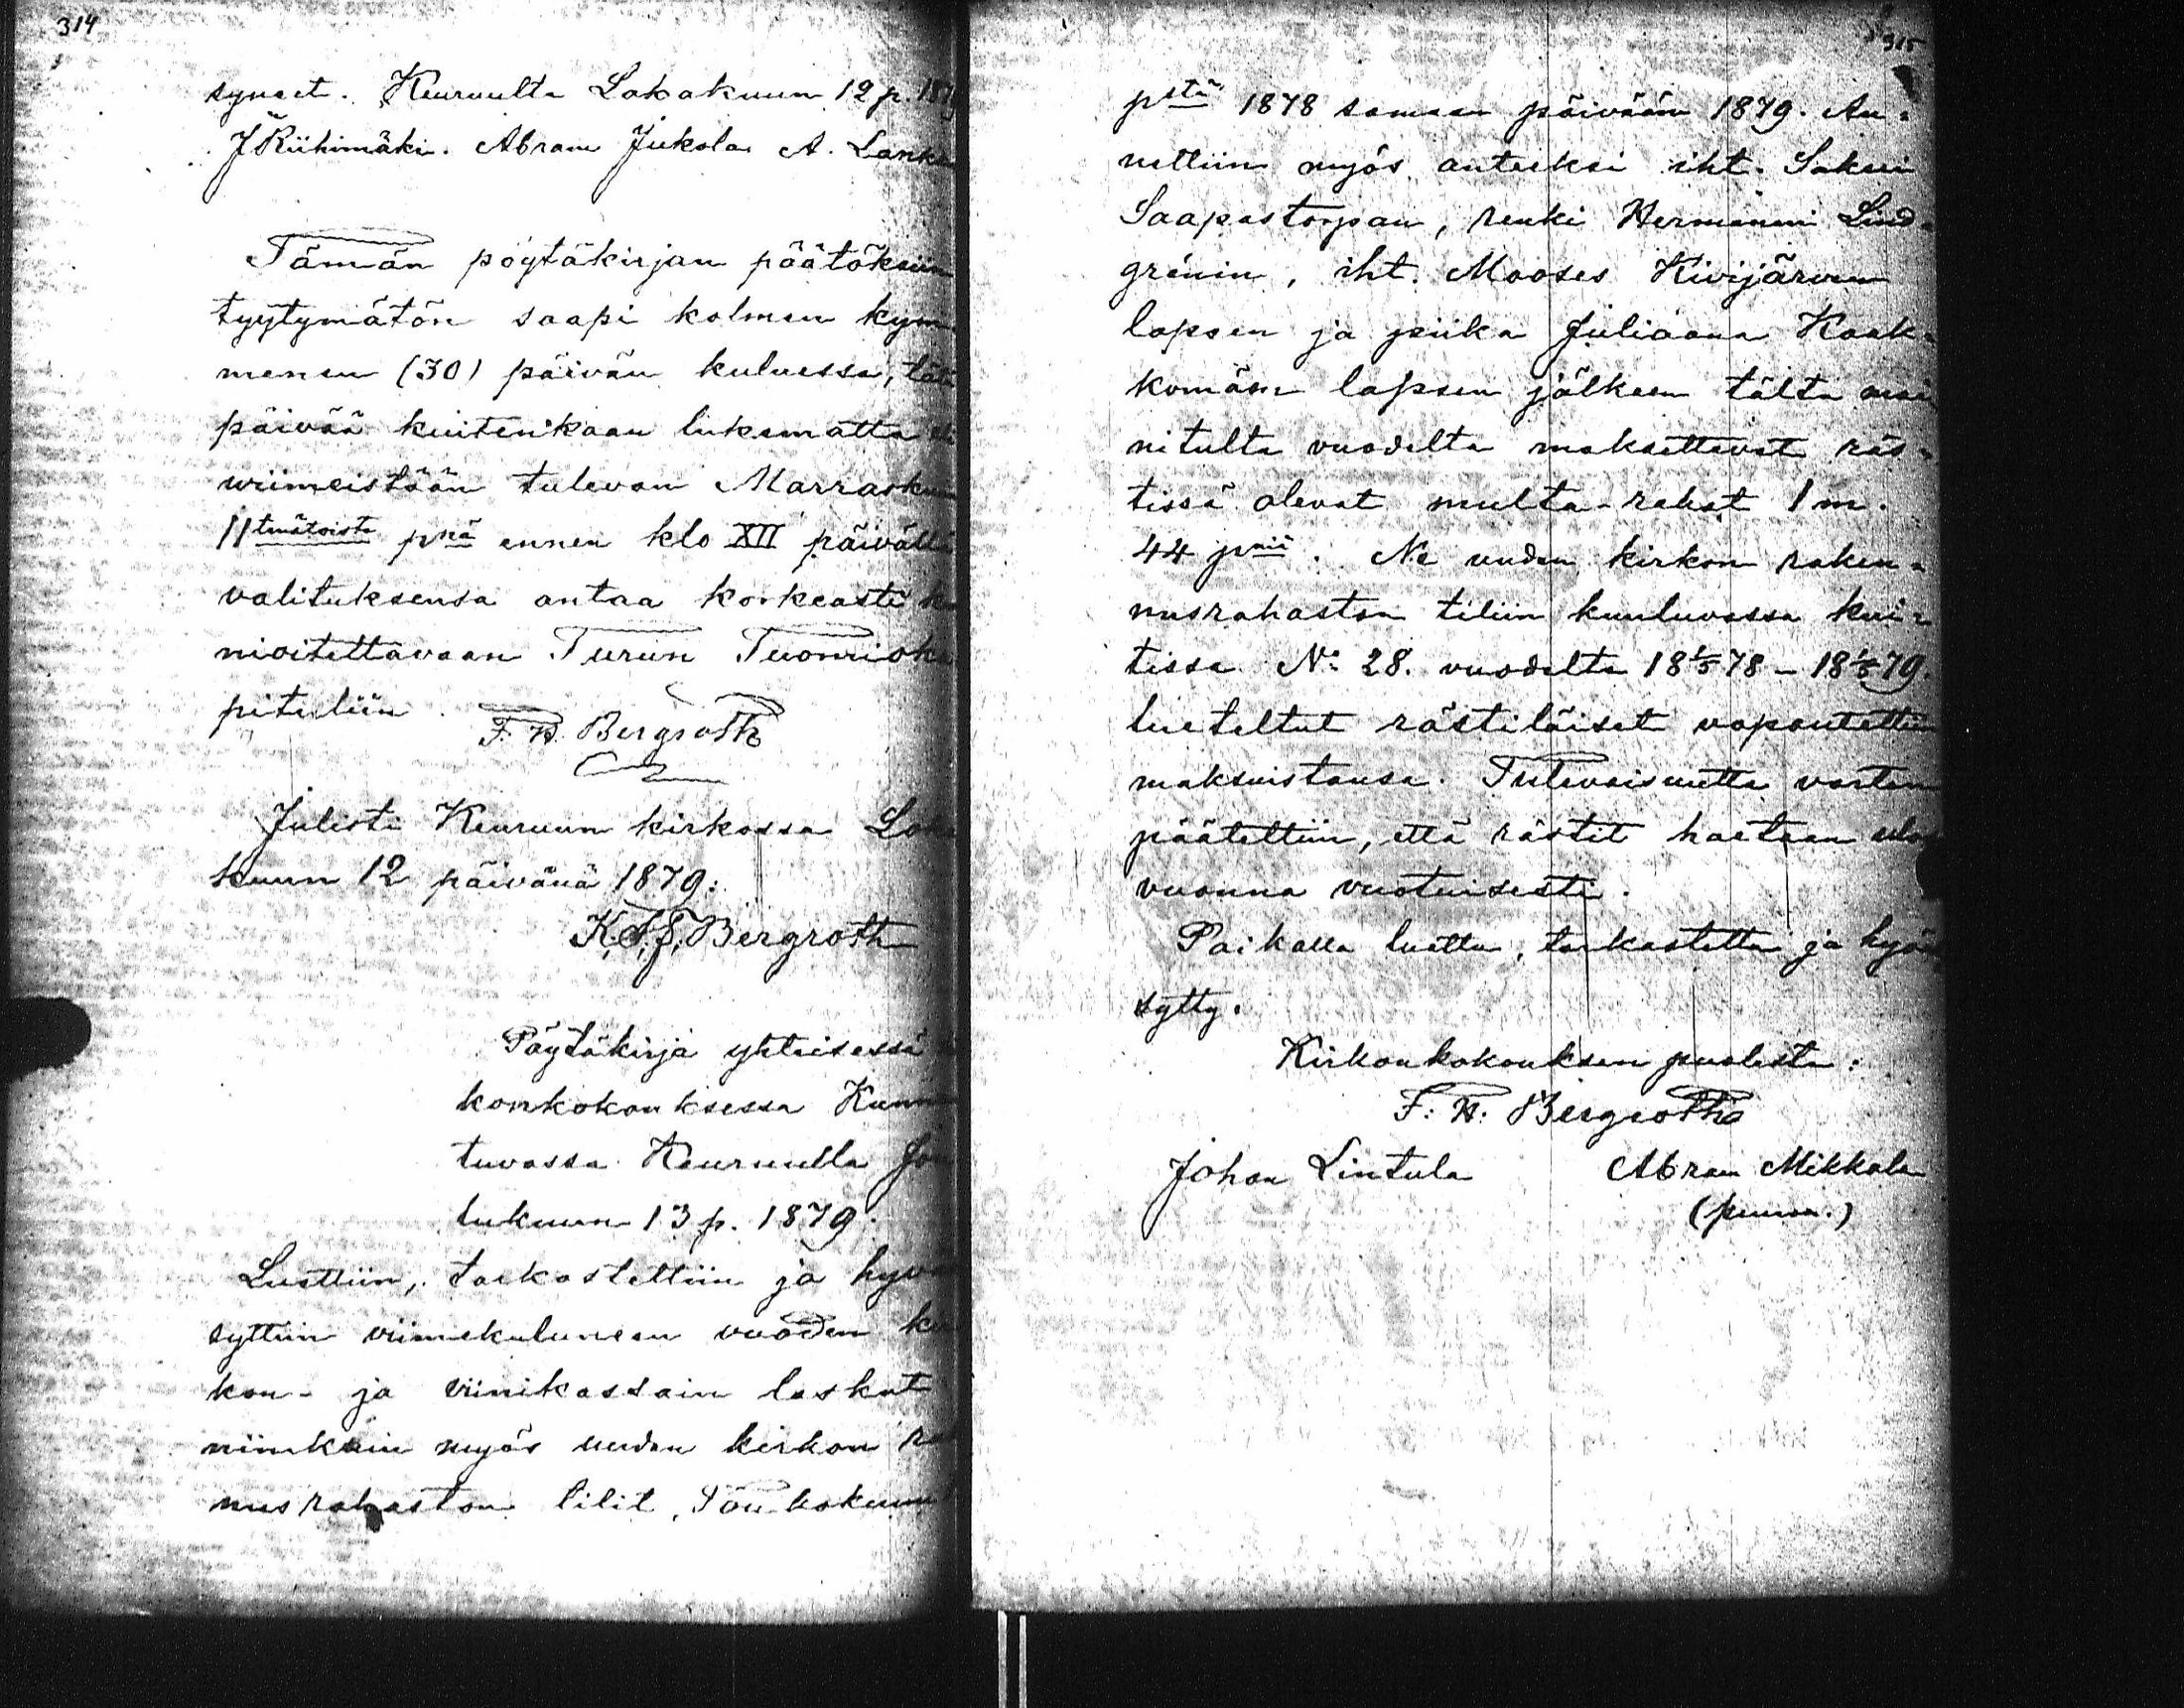 314
syneet. Keuruulta Lokakuun 12 p. 1879
J Riihimäki. Abram Jukola A. Lanka
Tämän pöytäkirjan päätöksiin
tyytymätön saapi kolmen kym
menen (30) päivän kuluessa, tätä
päivää kuitenkaan lukematta eli
wiimeistään tulevan Marraskuun
11 tmätoista pnä ennen klo XII päivällä
valituksensa antaa korkeasti ku
nioitettavaan Turun Tuomioka
pituliin. F. H. Bergroth
Julisti Keuruun kirkossa Lo
kuun 12 päivänä 1879:
K. S. J. Bergroth
Pöytäkirja yhteisessä
konkokouksessa Kunn
tuvassa Keuruulla Jou
lukuun 13 p. 1879.
Luettiin, tarkastettiin ja hyv
syttiin viimekuluneen vuoden ki
kon- ja viinikassain laskut
niinkuin myös uuden kirkon ra
nusrahaston tilit, Toukokuun
315
pstä 1878 samaan päivään 1879. An-
nettiin myös anteeksi iht. Sakui
Saapastorpan, renki Hermanni Lind-
grénin, iht. Mooses Kivijärven
lapsen ja piika Juliaana Kaak-
komäen lapsen jälkeen tältä mai
nitulta vuodelta maksettavat räs-
tissä olevat multa-rahat 1 m.
44 pniä. Ne uuden kirkon raken-
nusrahaston tiliin kuuluvassa kui-
tissa No: 28. vuodelta 18 1/5 78 - 18 1/5 79.
luetellut rästiläiset vapautettiin
maksuistansa. Tulevaisuutta varten
päätettiin, että rästit haetaan ulos
vuonna vuotuisesti.
Paikalla luettu, tarkastettu ja hyvä
sytty.
Kirkonkokouksen puolesta:
F: H: Bergroth
Johan Lintula Abram Mikkola
(puum.)